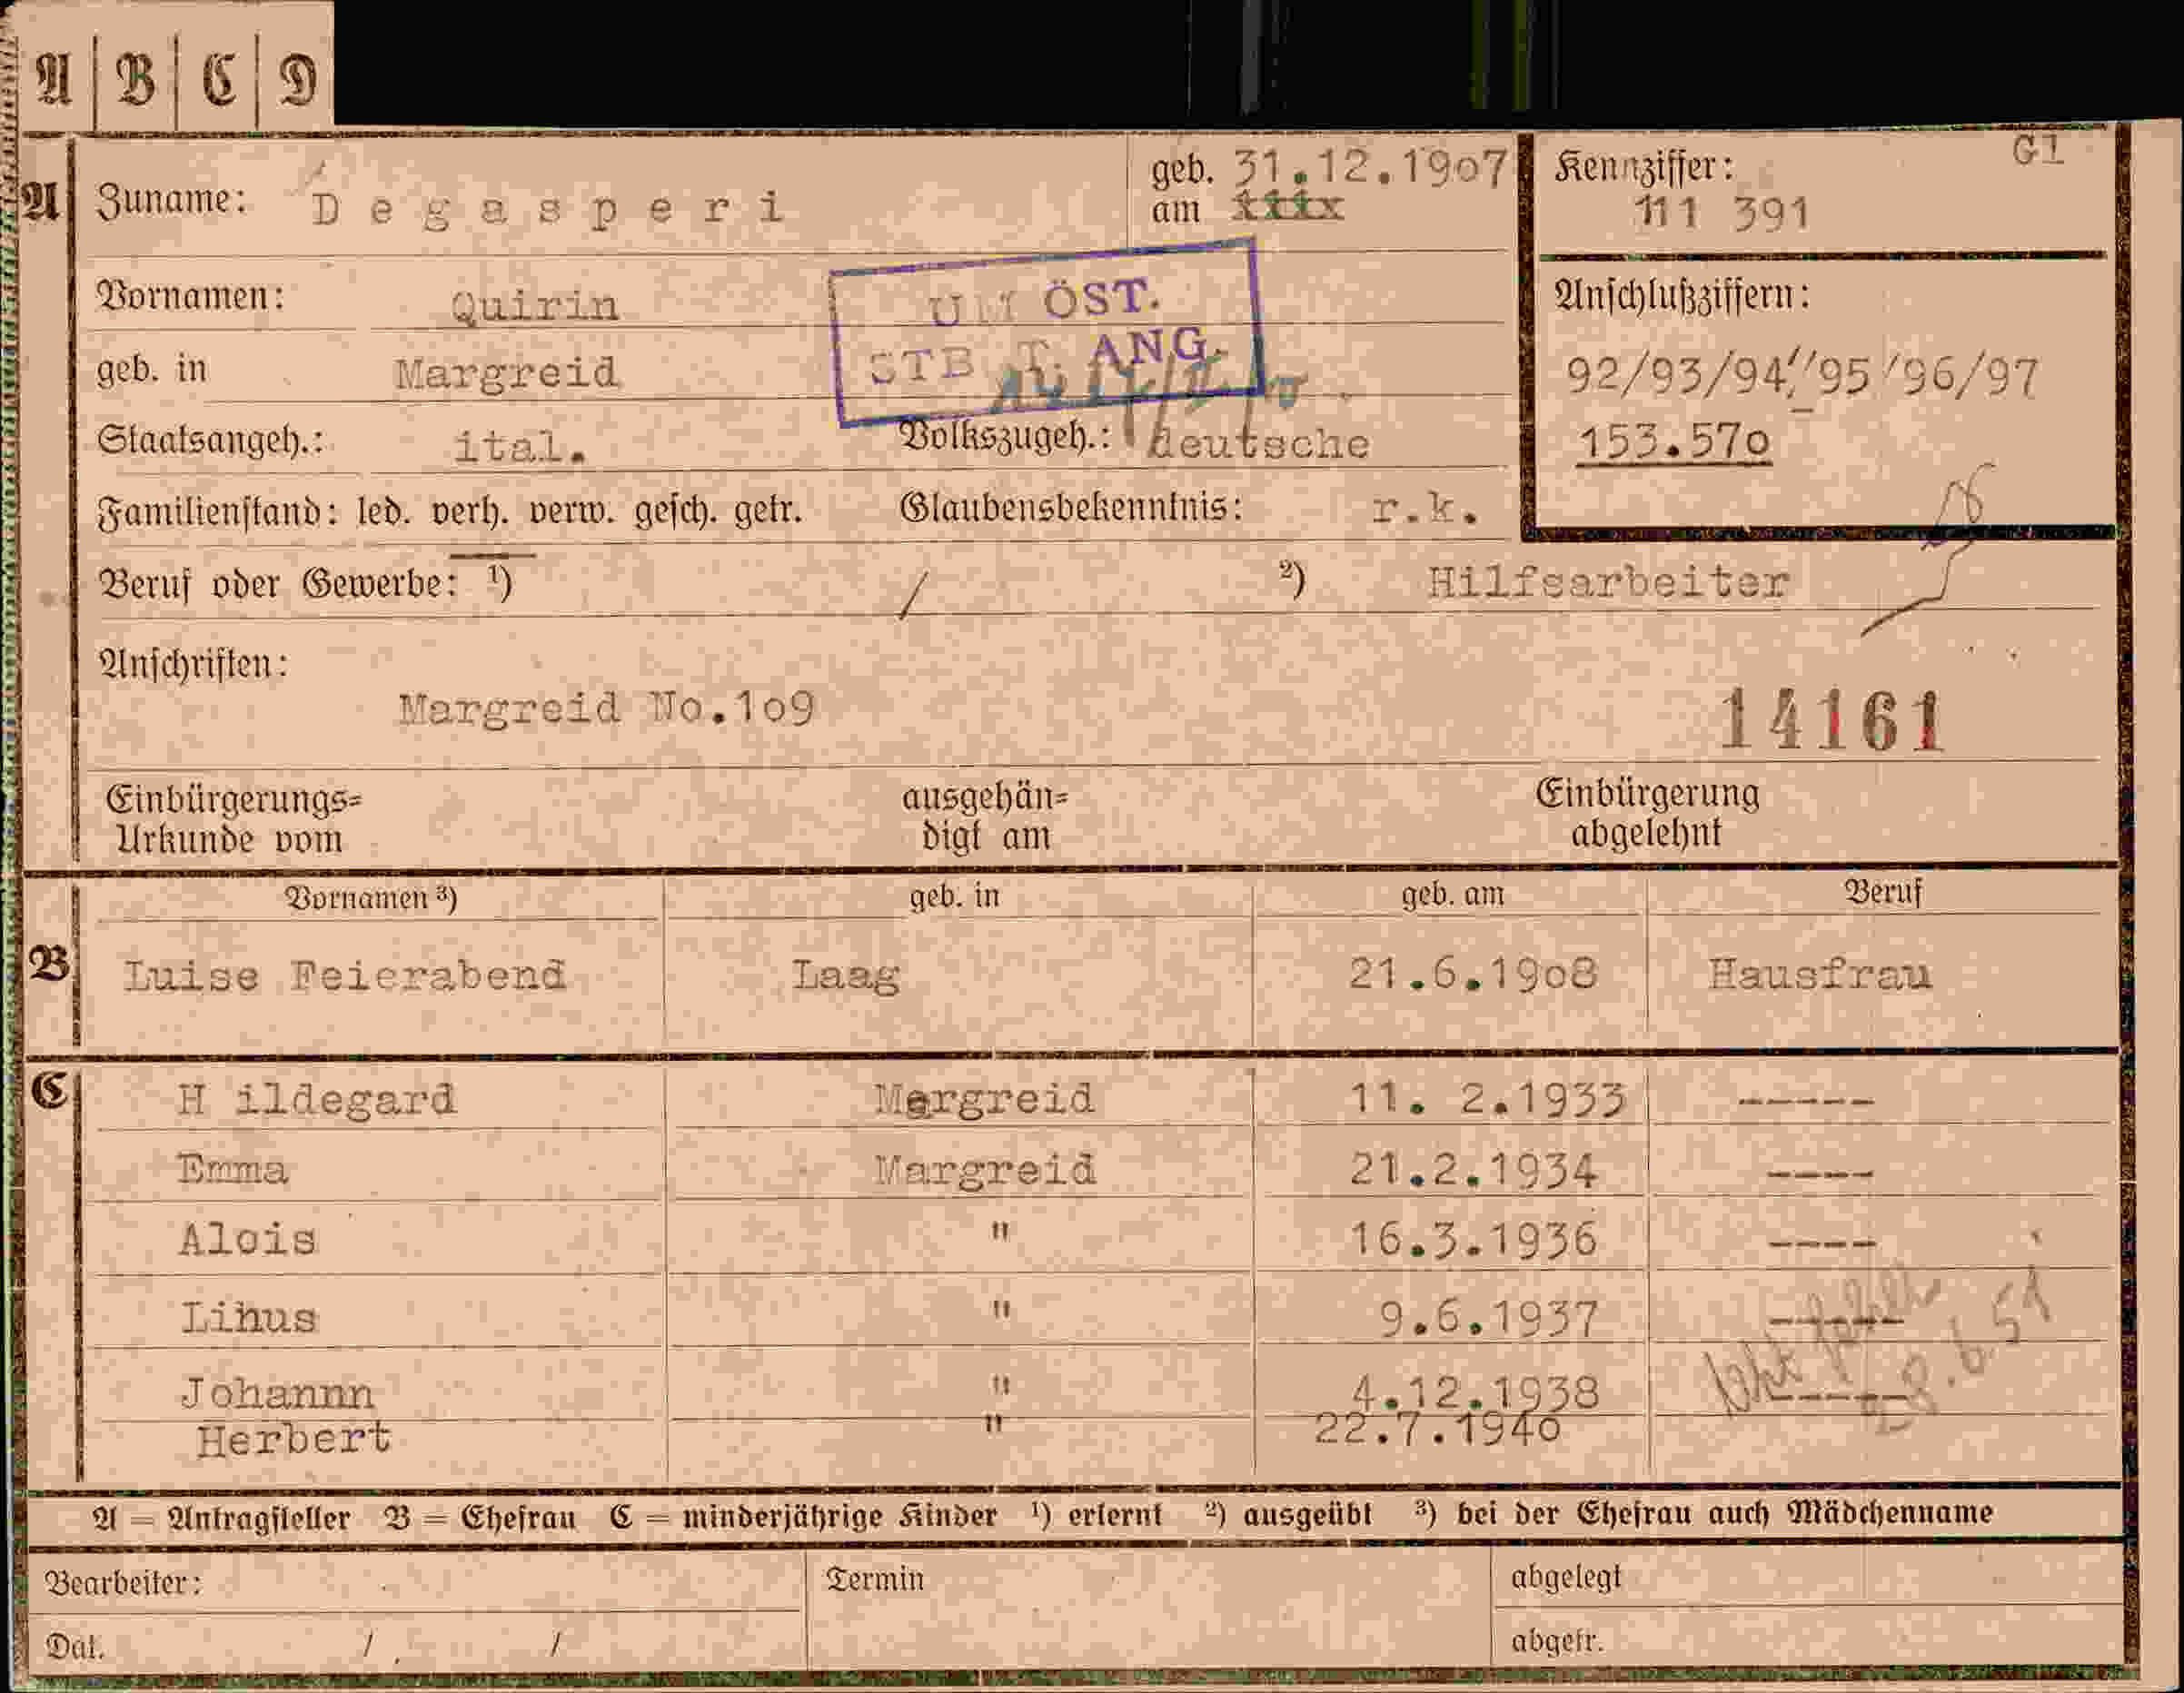 A B C D
A Zuname: Degasperi geb. am 31.12.1907 Kennziffer: GI
111 391
Vornamen: Quirin UM ÖST. Anschlußziffern:
geb. in Margreid ST ANG. 92/93/94/"95/96/97
Staatsangeh.: ital. Volkszugeh.: deutsche 153.570
Familienstand: led. verh. verw. gesch. getr. Glaubensbekenntnis: r.k.
Beruf oder Gewerbe: ¹) / ²) Hilfsarbeiter
Anschriften:
Margreid No.109 14161
Einbürgerungs= ausgehän= Einbürgerung
Urkunde vom digt am abgelehnt
Vornamen ³) geb. in geb. am Beruf
B Luise Feierabend Laag 21.6.1908 Hausfrau
C H ildegard Margreid 11. 2.1933 -----
Emma Margreid 21.2.1934 ----
Alois " 16.3.1936 ----
Linus " 9.6.1937 -----
Johannn " 4.12.1938 -----
8.6.51
Herbert " 22.7.1940
A = Antragsteller B = Ehefrau C = minderjährige Kinder ¹) erlernt ²) ausgeübt ³) bei der Ehefrau auch Mädchenname
Bearbeiter: Termin abgelegt
Dat. / / abgefr.